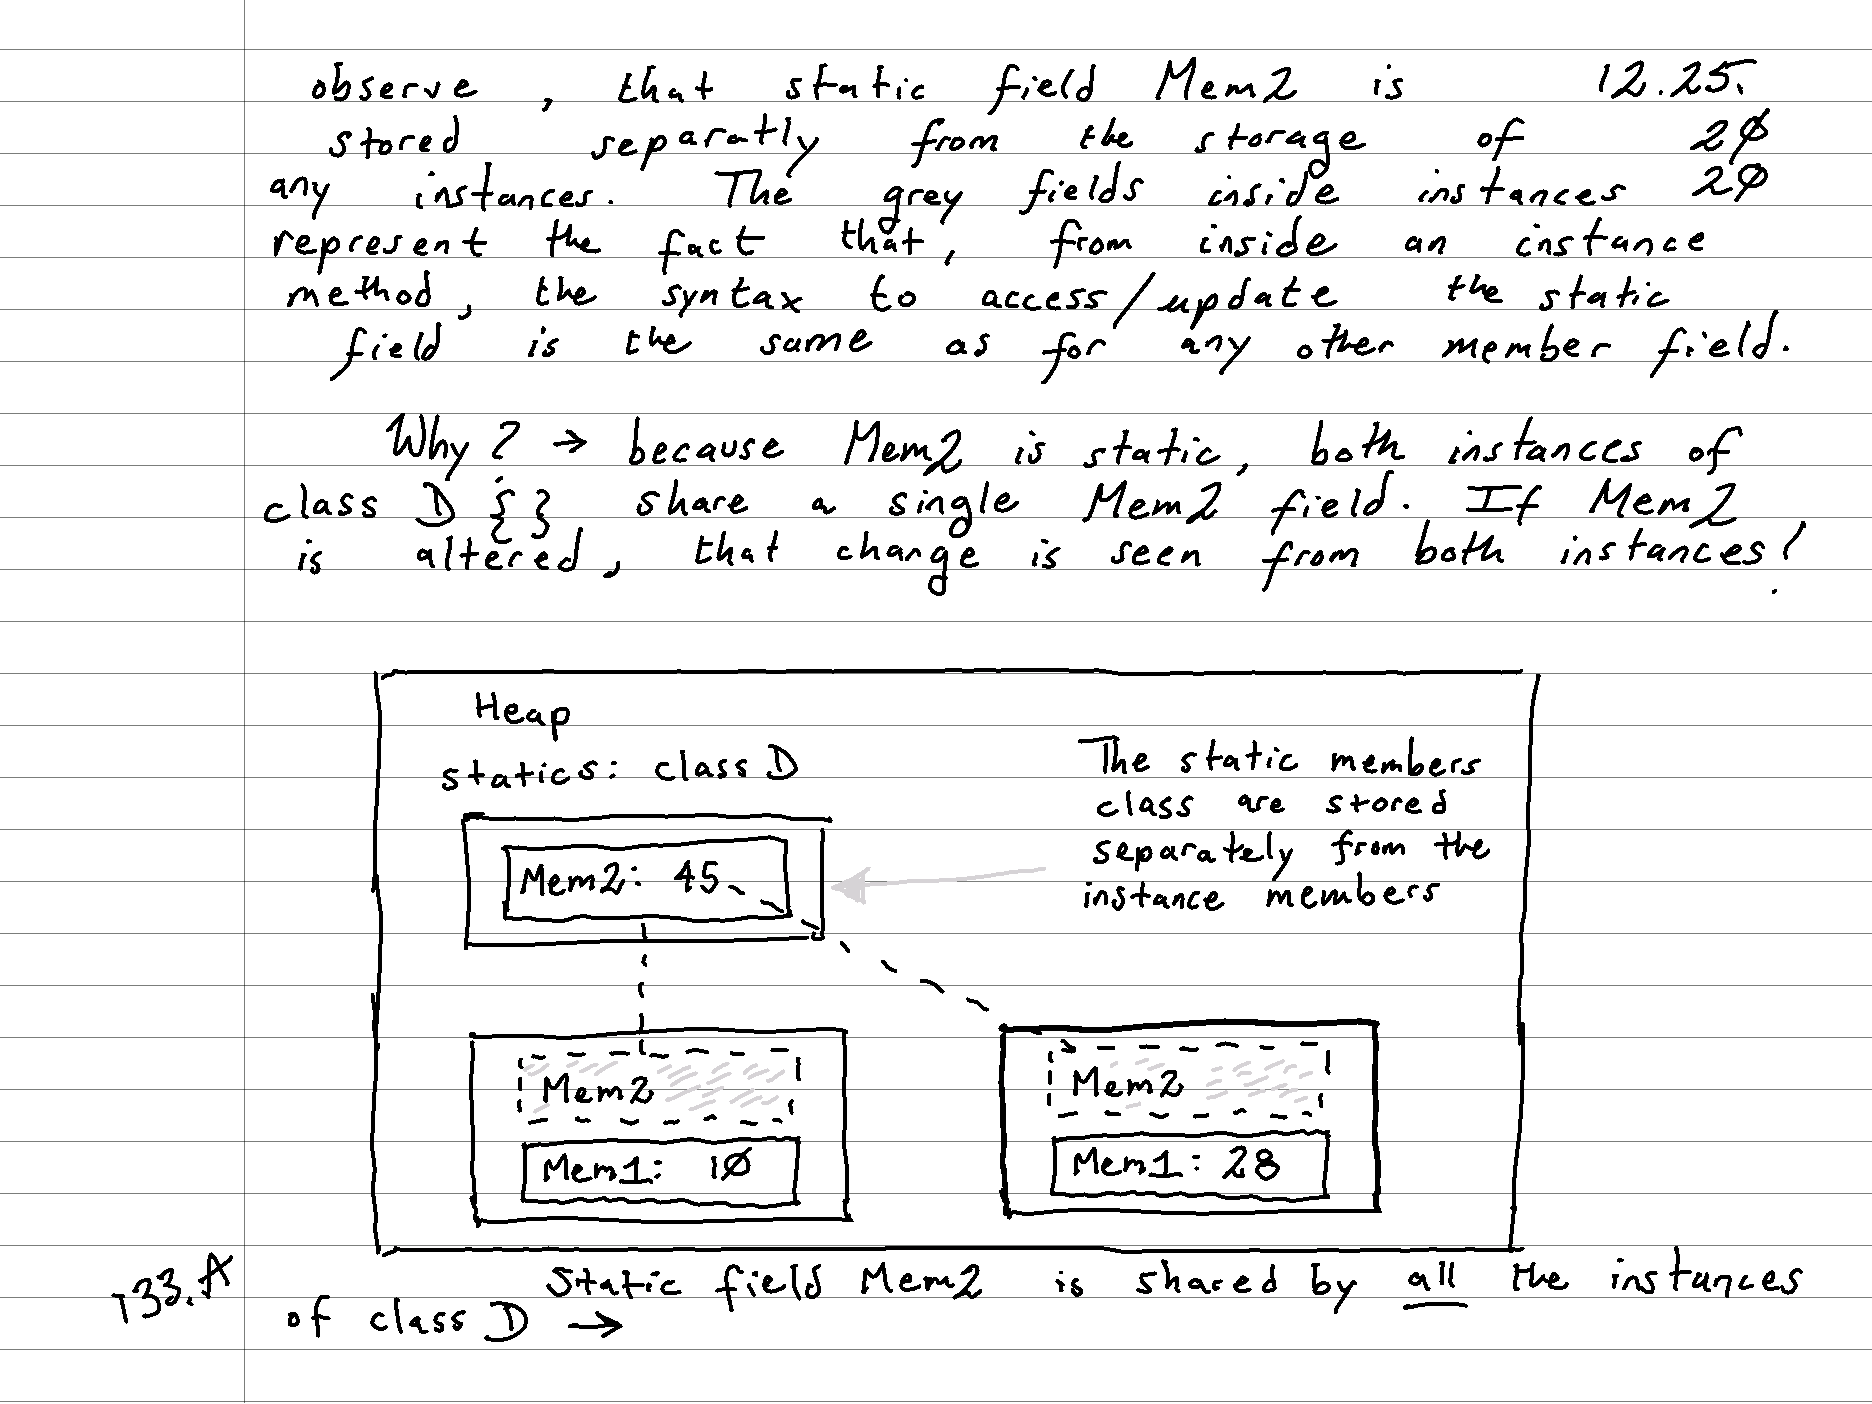 observe , that static field Mem2 is 12.25.
stored separatly from the storage of 2Ø
any instances. The grey fields inside instances 2Ø
represent the fact that, from inside an instance
method, the syntax to access/update the static
field is the same as for any other member field.
Why? → because Mem2 is static, both instances of
class D {} share a single Mem2 field. If Mem2
is altered, that change is seen from both instances!
Heap
statics: class D
The static members
class are stored
separately from the
instance members
Mem2: 45
Mem2
Mem2
Mem1: 1Ø
Mem1: 28
T33.A
Static field Mem2 is shared by all the instances
of class D →